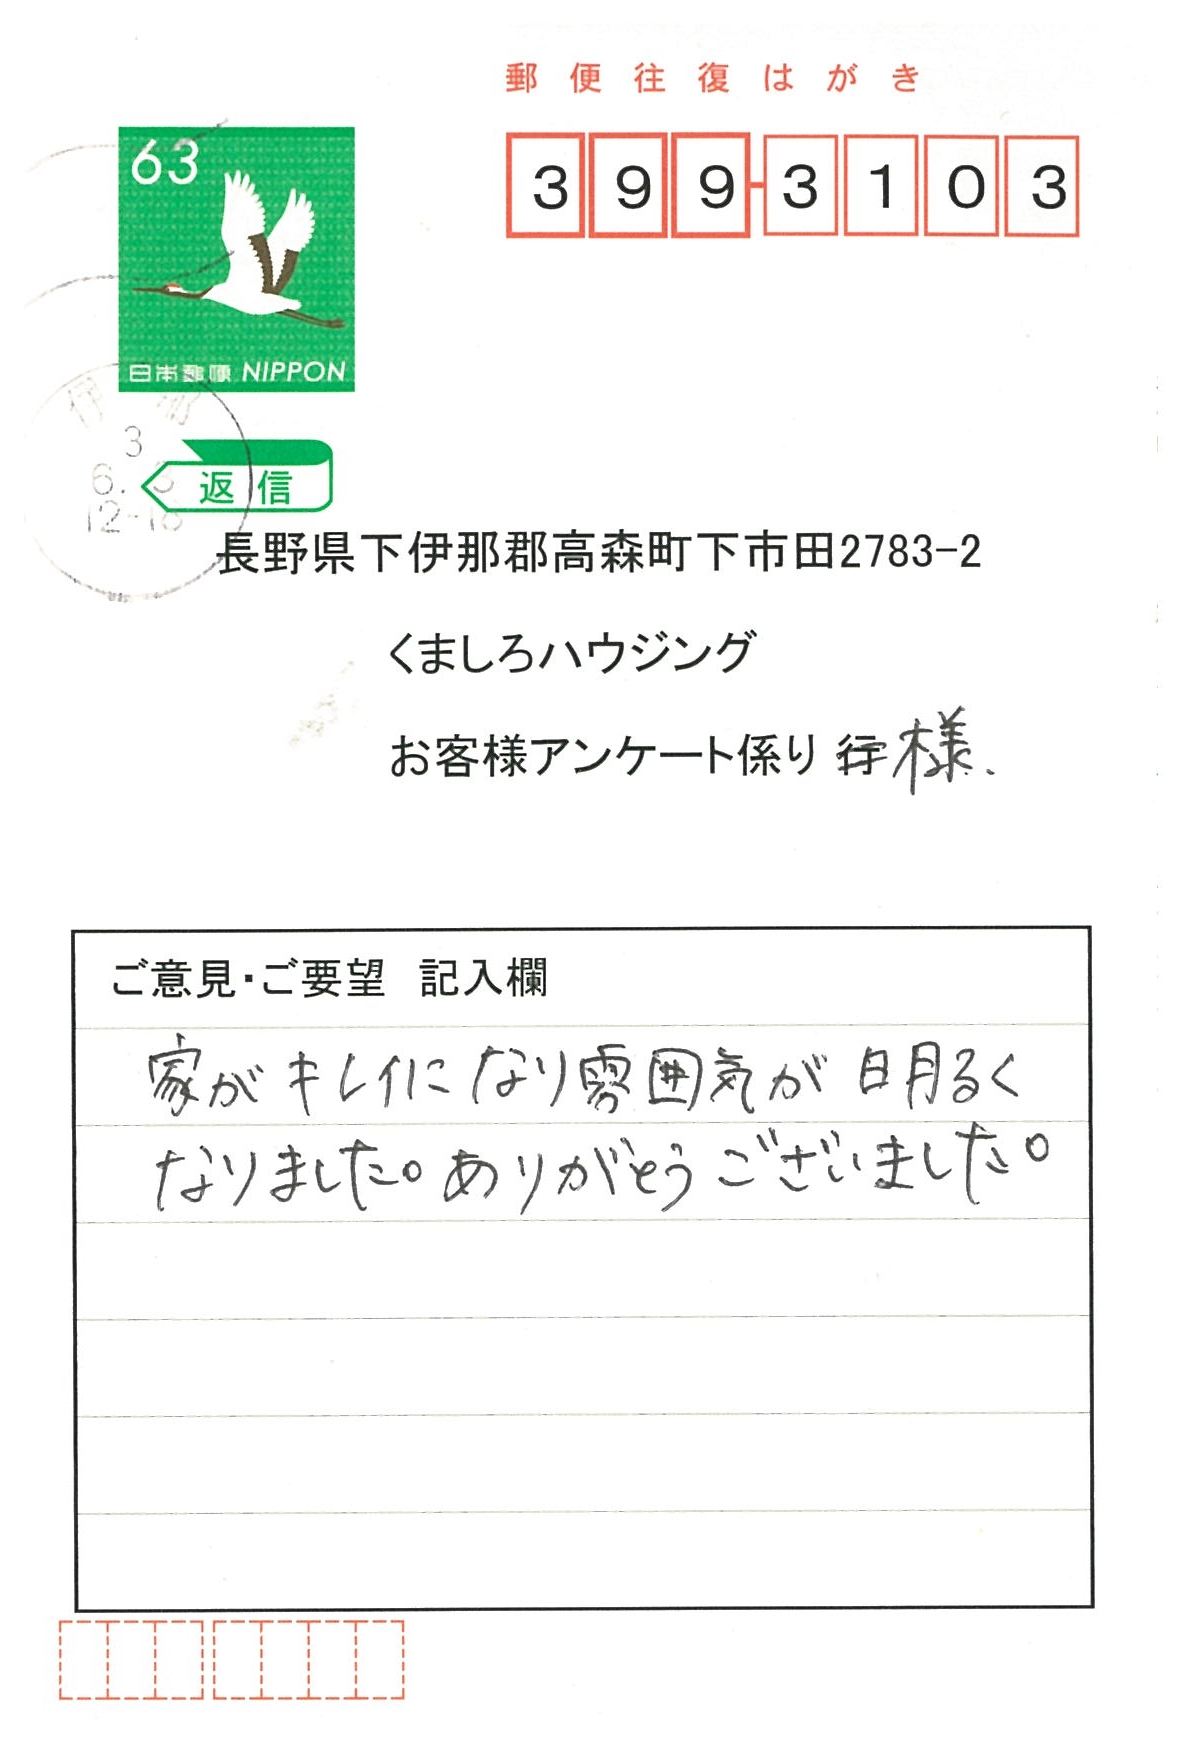 郵便往復はがき
399-3103
63
日本郵便 NIPPON
伊那
3
6.
12-18
返信
長野県下伊那郡高森町下市田2783-2
くましろハウジング
お客様アンケート係り 行 様.
ご意見・ご要望 記入欄
家がキレイになり雰囲気が明るく
なりました。ありがとうございました。